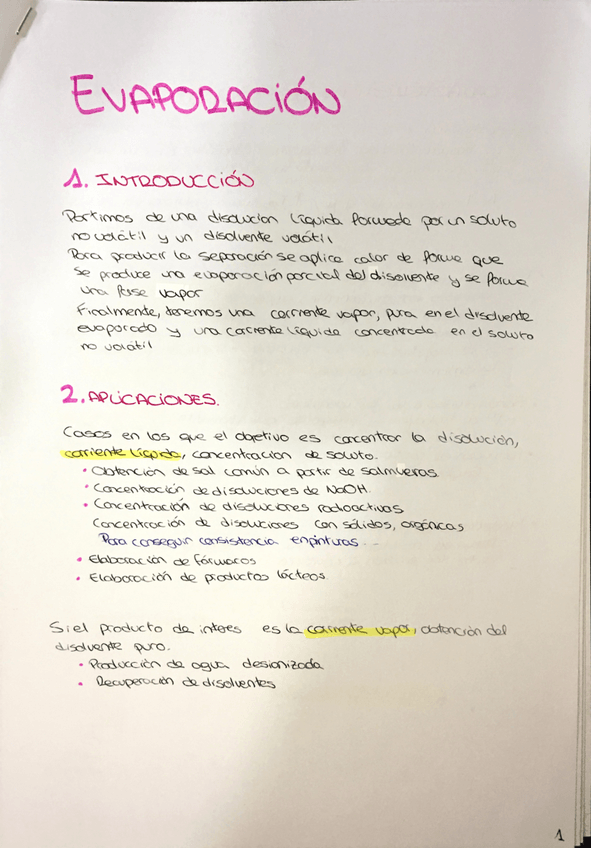 EVAPORACIÓN
1. INTRODUCCIÓN
Partimos de una disolución líquida formada por un soluto
no volátil y un disolvente volátil
Para producir la separación se aplica calor de forma que
se produce una evaporación parcial del disolvente y se forma
una fase vapor
Finalmente, tenemos una corriente vapor, pura en el disolvente
evaporado y una corriente líquida concentrada en el soluto
no volátil
2. APLICACIONES.
Casos en los que el objetivo es concentrar la disolución,
corriente líquida, concentración de soluto.
• Obtención de sal común a partir de salmueras
• Concentración de disoluciones de NaOH
• Concentración de disoluciones radioactivas
Concentración de disoluciones con sólidos, orgánicas
Para conseguir consistencia en pinturas...
• Elaboración de fármacos
• Elaboración de productos lácteos
Si el producto de interes es la corriente vapor, obtención del
disolvente puro.
• Producción de agua desionizada
• Recuperación de disolventes
1